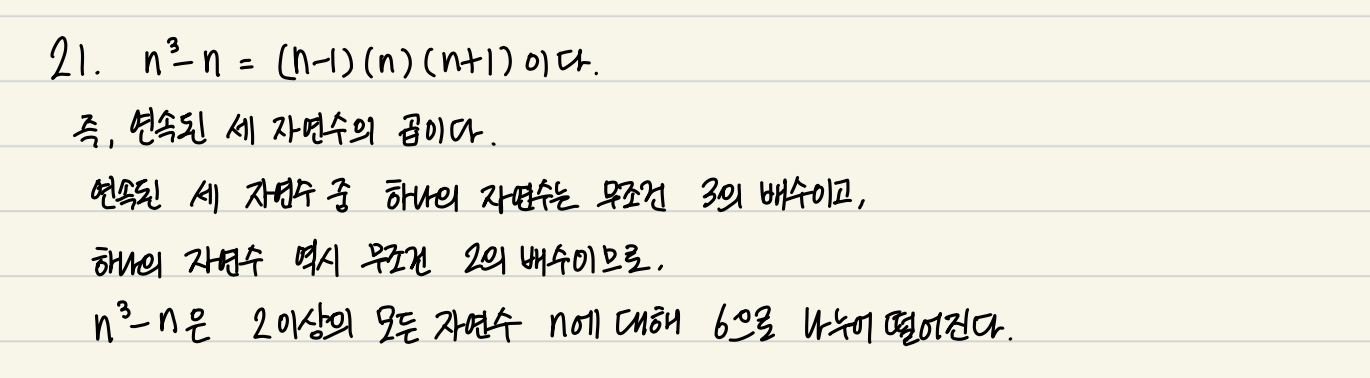 21. n³-n = (n-1)(n)(n+1)이다.
즉, 연속된 세 자연수의 곱이다.
연속된 세 자연수 중 하나의 자연수는 무조건 3의 배수이고,
하나의 자연수 역시 무조건 2의 배수이므로.
n³-n은 2이상의 모든 자연수 n에 대해 6으로 나누어 떨어진다.